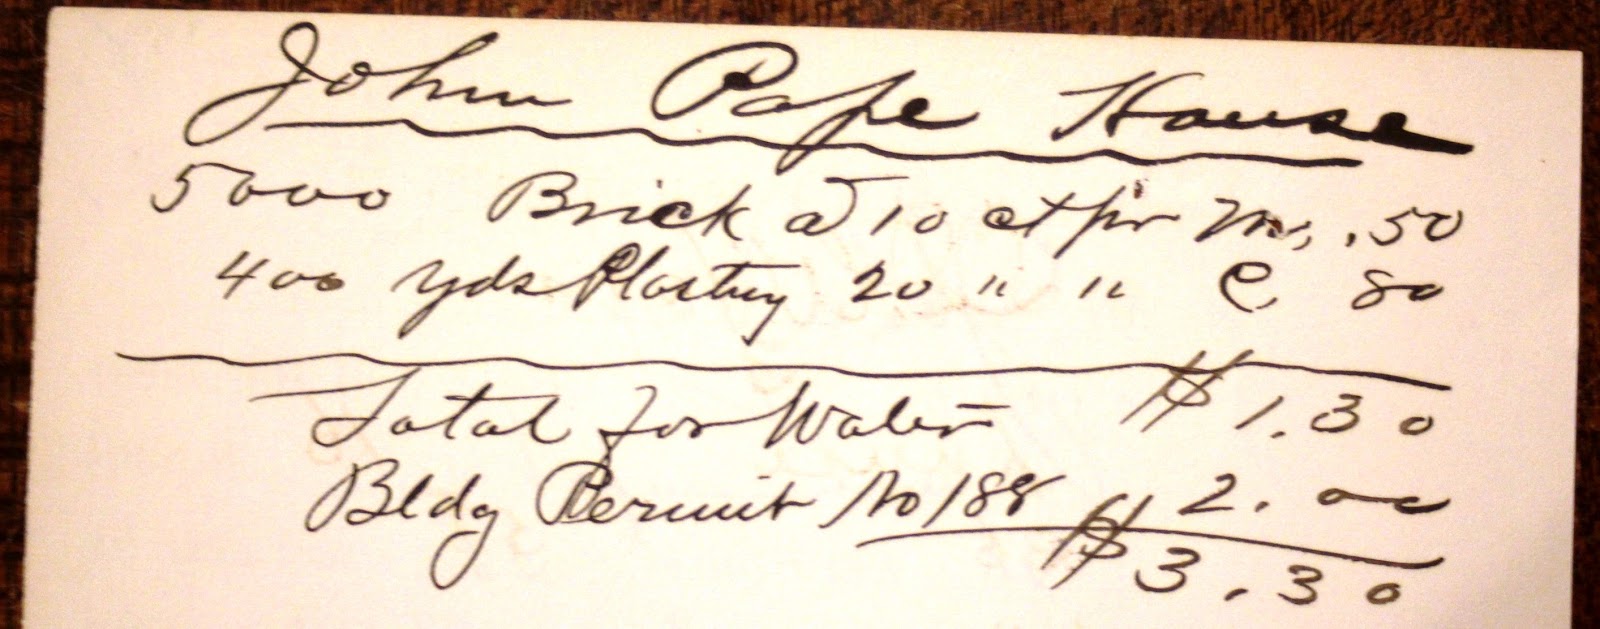 John Pape House
5000 Brick @ 10 ct pr M. .50
400 yds Plastrg 20 " " C. 80
Total for Water $1.30
Bldg Permit No 188 2.00
$3.30